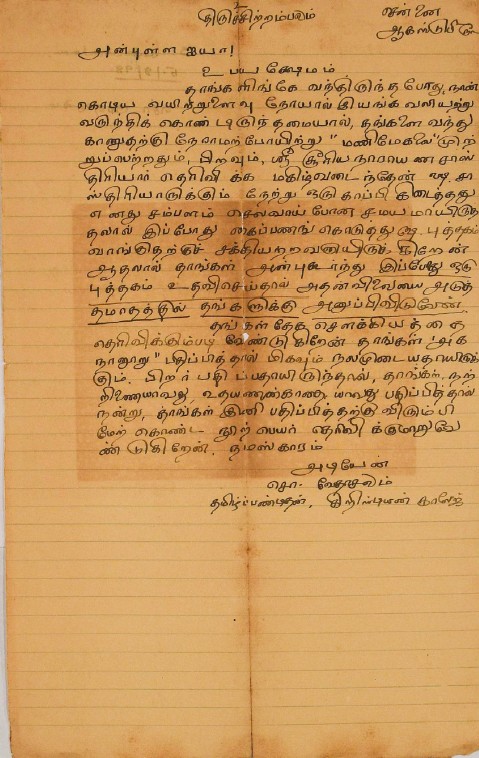 உ
திருச்சிற்றம்பலம்
சென்னை
ஆகஸ்டு
அன்புள்ள ஐயா!
உபய க்ஷேமம்
தாங்களிங்கே வந்திருந்தபோது, நான்
கொடிய வயிற்றுளைவு நோயால் இயங்க வலியற்று
வருந்திக் கொண்டிருந்தமையால், தங்களை வந்து
காணுதற்கு நேராமற்போயிற்று "மணிமேகலை" முற்
றுப்பெற்றதும், பிறவும், ஸ்ரீ சூரிய நாராயண சாஸ்
திரியார் தெரிவிக்க மகிழ்வடைந்தேன் ௸ சா
ஸ்திரியாருக்கும் நேற்று ஒரு காப்பி கிடைத்தது
எனது சம்பளம் செலவாய் போன சமயமாயிருத்
தலால் இப்போது கைப்பணங் கொடுத்து ௸ புத்தகம்
வாங்குதற்குச் சக்தியற்றவனாயிருக்கிறேன்
ஆதலால் தாங்கள் அன்புகூர்ந்து இப்போது ஒரு
புத்தகம் உதவிசெய்தால் அதன் விலையை அடுத்
தமாதத்தில் தங்களுக்கு அனுப்பிவிடுவேன்.
தங்கள் தேக சௌக்கியத்தை
தெரிவிக்கும்படி வேண்டுகிறேன் தாங்கள் "அக
நானூறு" பதிப்பித்தால் மிகவும் நலமுடையதாயிருக்
கும். பிறர் பதிப்பதாயிருந்தால், தாங்கள், நற்
றிணையாவது, உதயணன்கதை யாவது பதிப்பித்தால்
நன்று, தாங்கள் இனி பதிப்பித்தற்கு விரும்பி
மேற் கொண்ட நூற் பெயர் தெரிவிக்குமாறு வே
ண்டுகிறேன். நமஸ்காரம்
அடியேன்
சொ. வேதாசலம்
தமிழ்ப்பண்டிதன், கிறிஸ்டியன் காலேஜ்